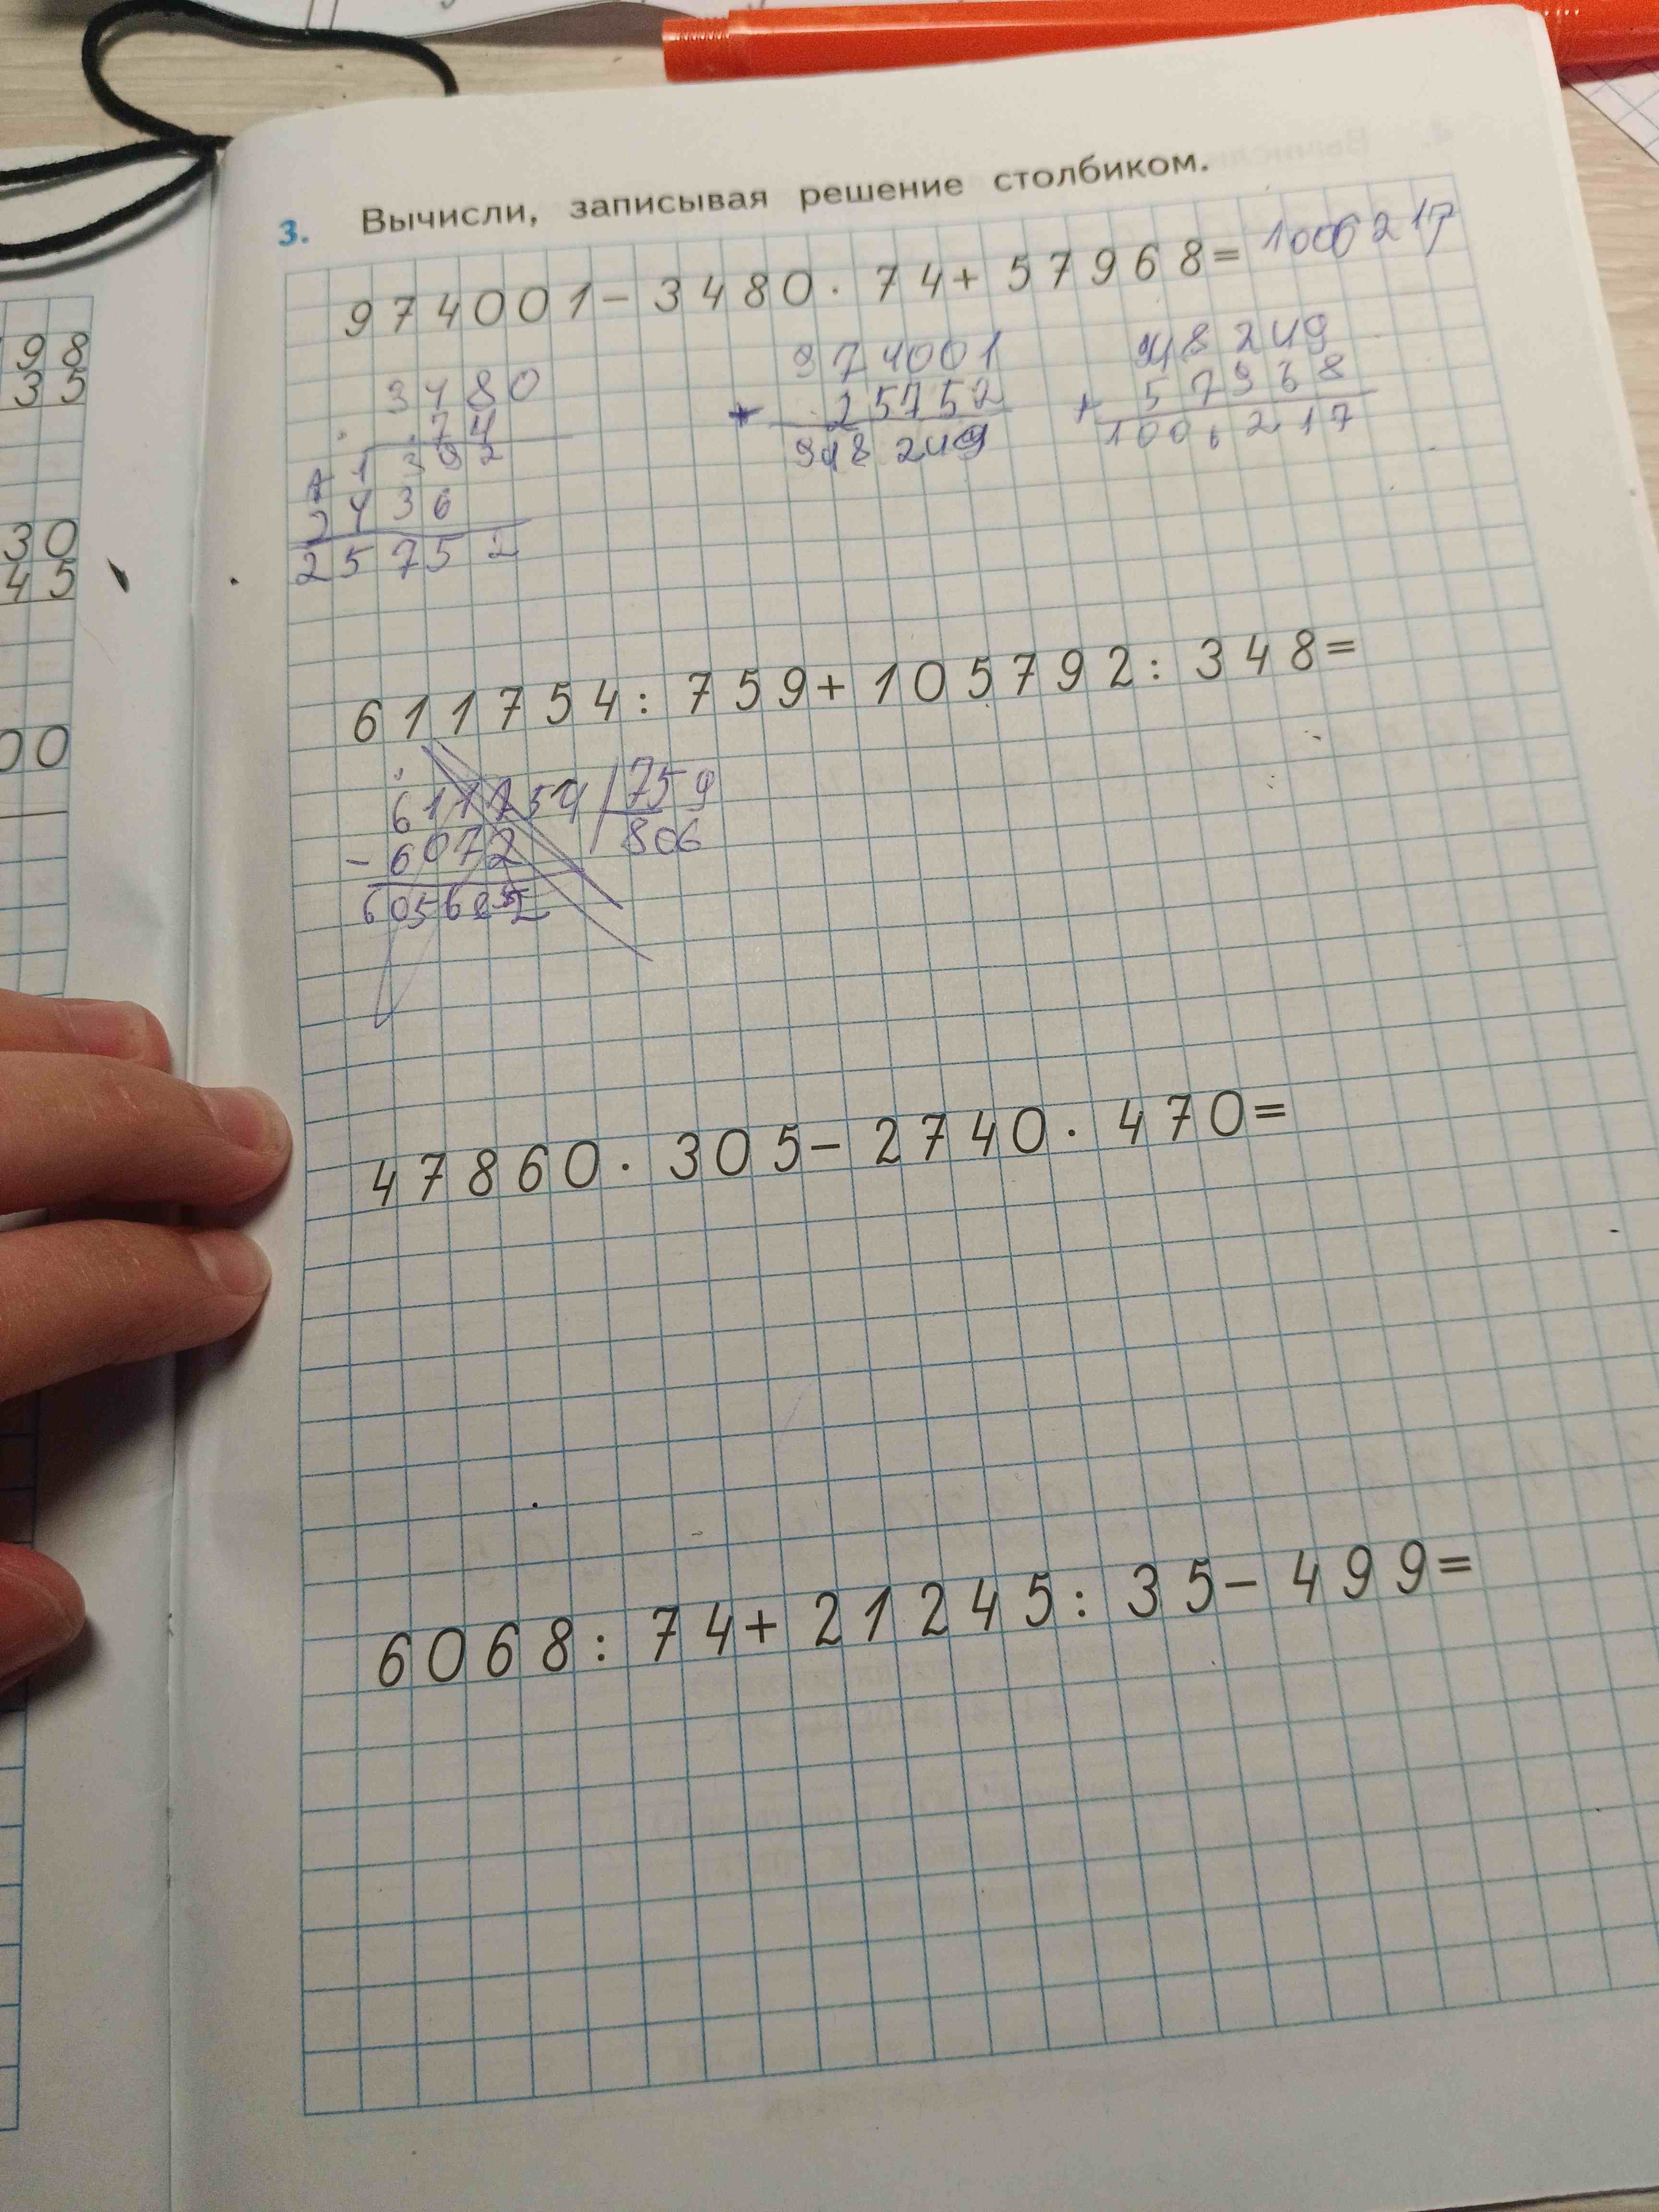 98
35
30
45
00
3. Вычисли, записывая решение столбиком.
974001 - 3480 · 74 + 57968 = 1006217
3480
74
+ 1392
2436
25752
974001
25752
948249
948249
+ 57968
1006217
611754 : 759 + 105792 : 348 =
611754 | 759
- 6072 | 806
47860 · 305 - 2740 · 470 =
6068 : 74 + 21245 : 35 - 499 =